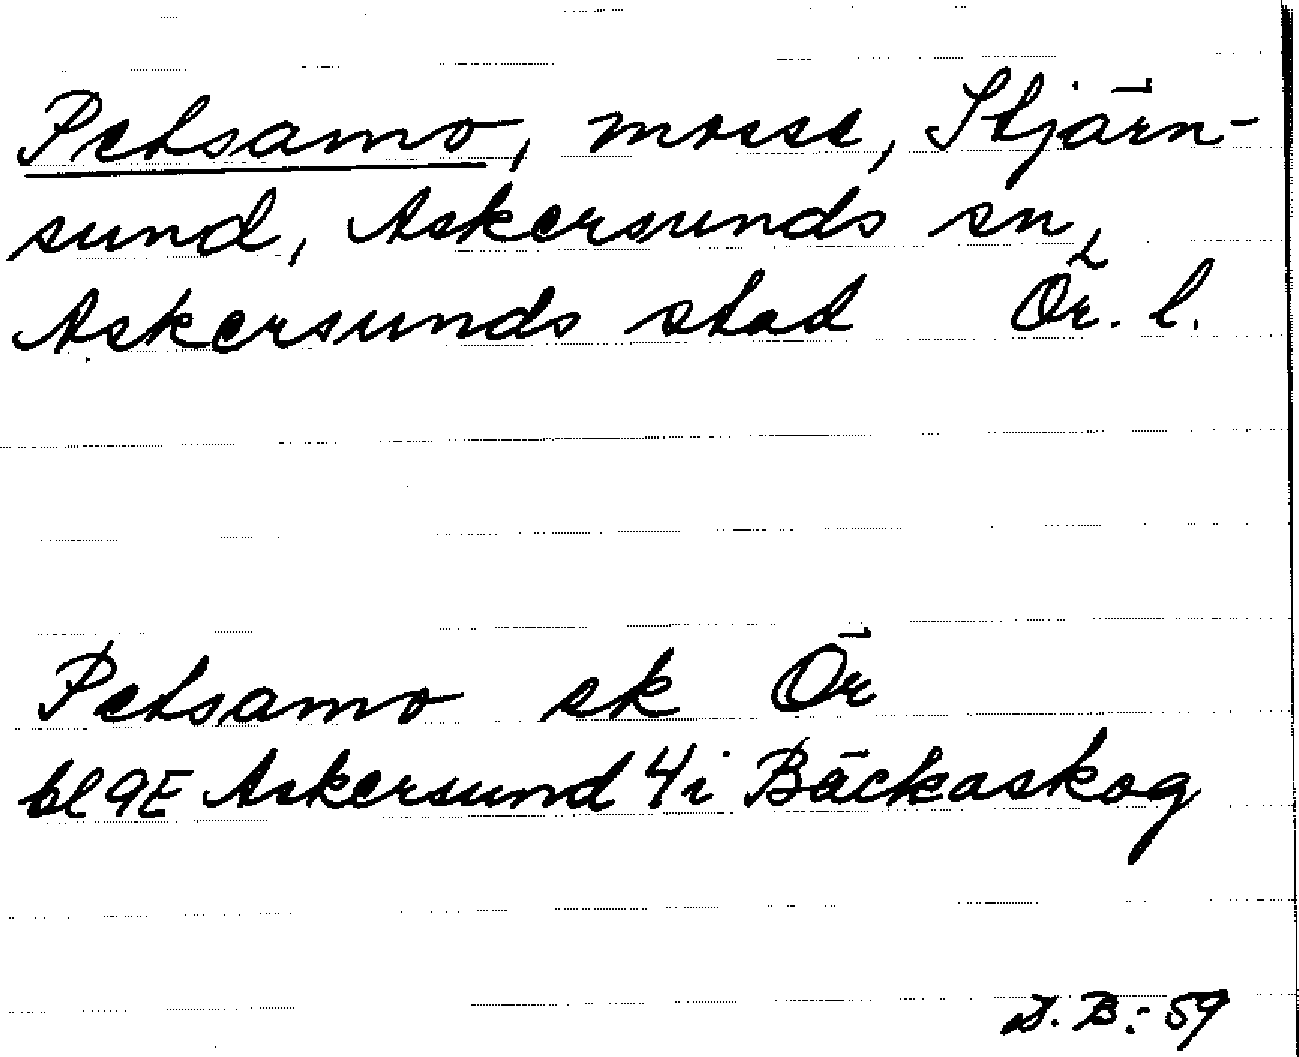 Petsamo, mosse, Stjärn-
sund, Askersunds sn,
Askersunds stad Ör. l.
Petsamo ek Ör
bl 9E Askersund 4i Bäckaskog
D. B.:- 59